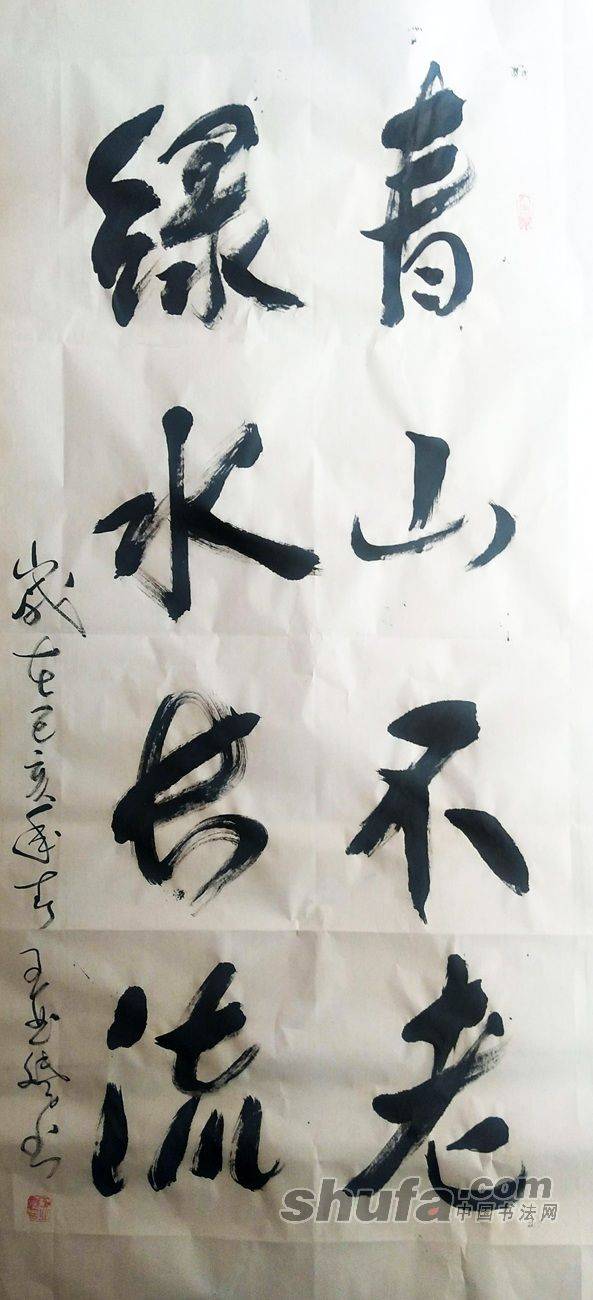 青山不老
绿水长流
岁在己亥年春王 书
shufa.com
中国书法网